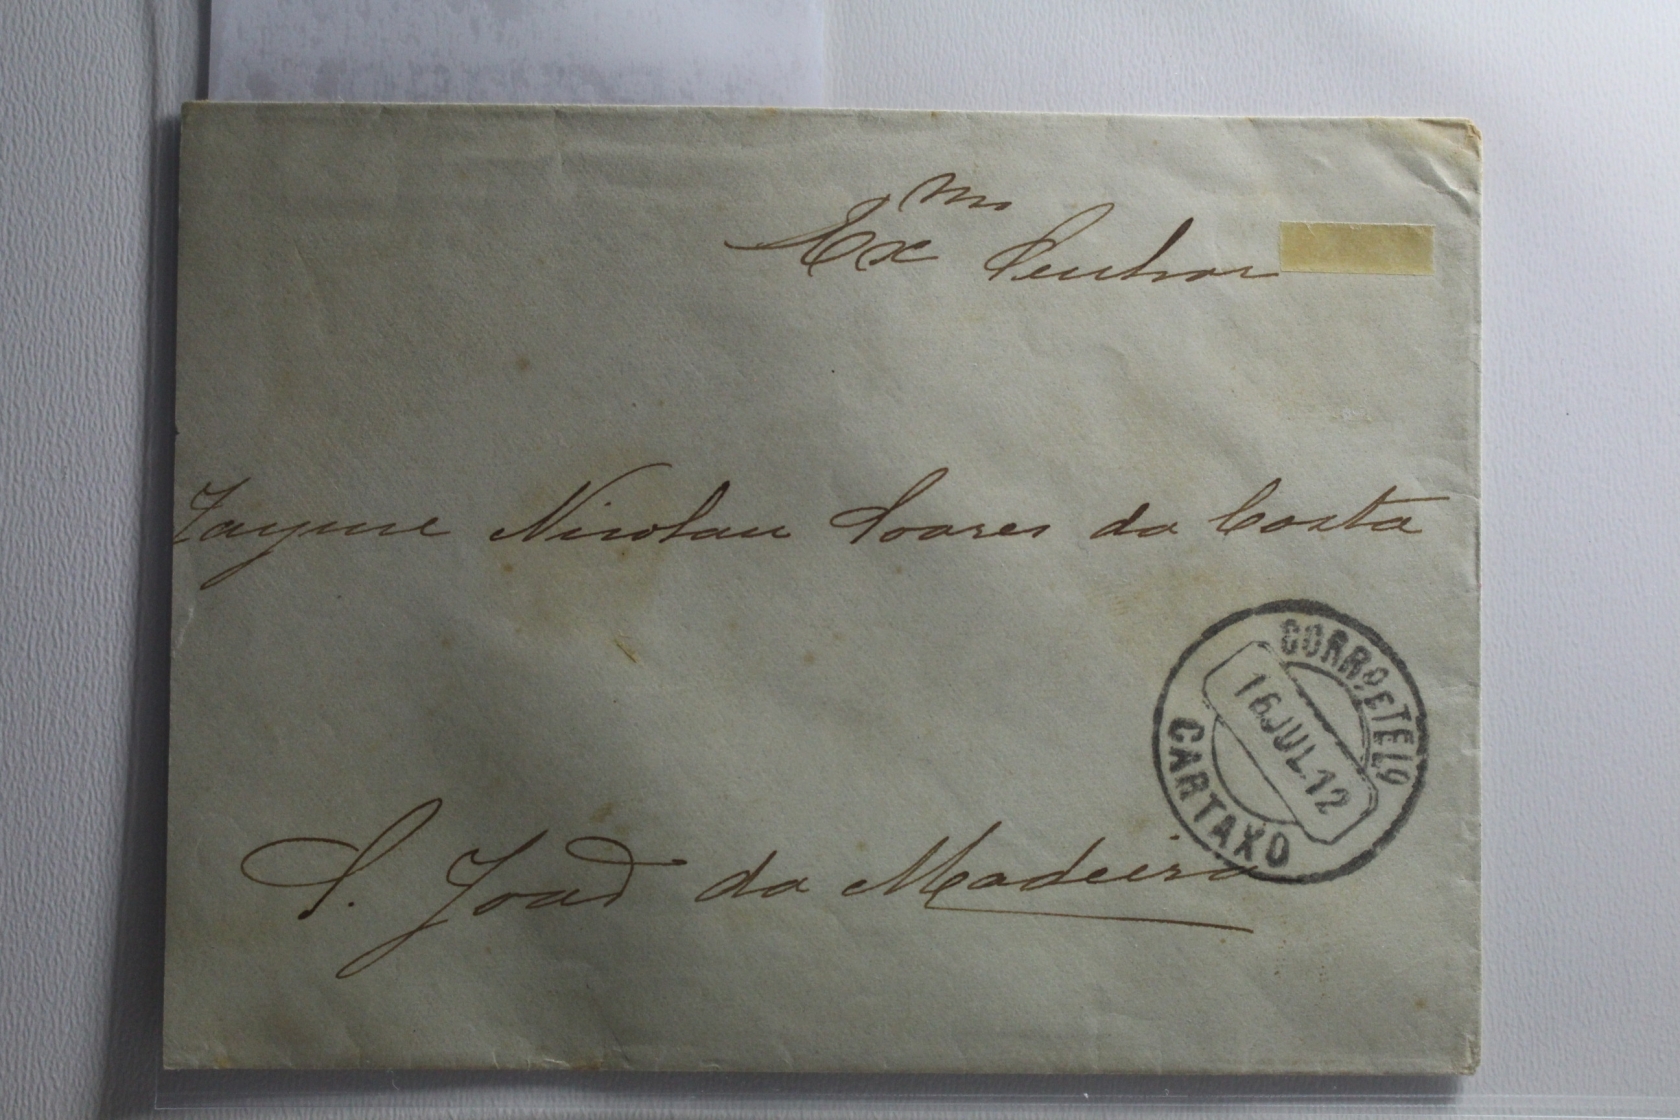 Exmo Senhor
Jayme Nicolau Soares da Costa
CORRO E TELO
16 JUL. 12
CARTAXO
S. João da Madeira